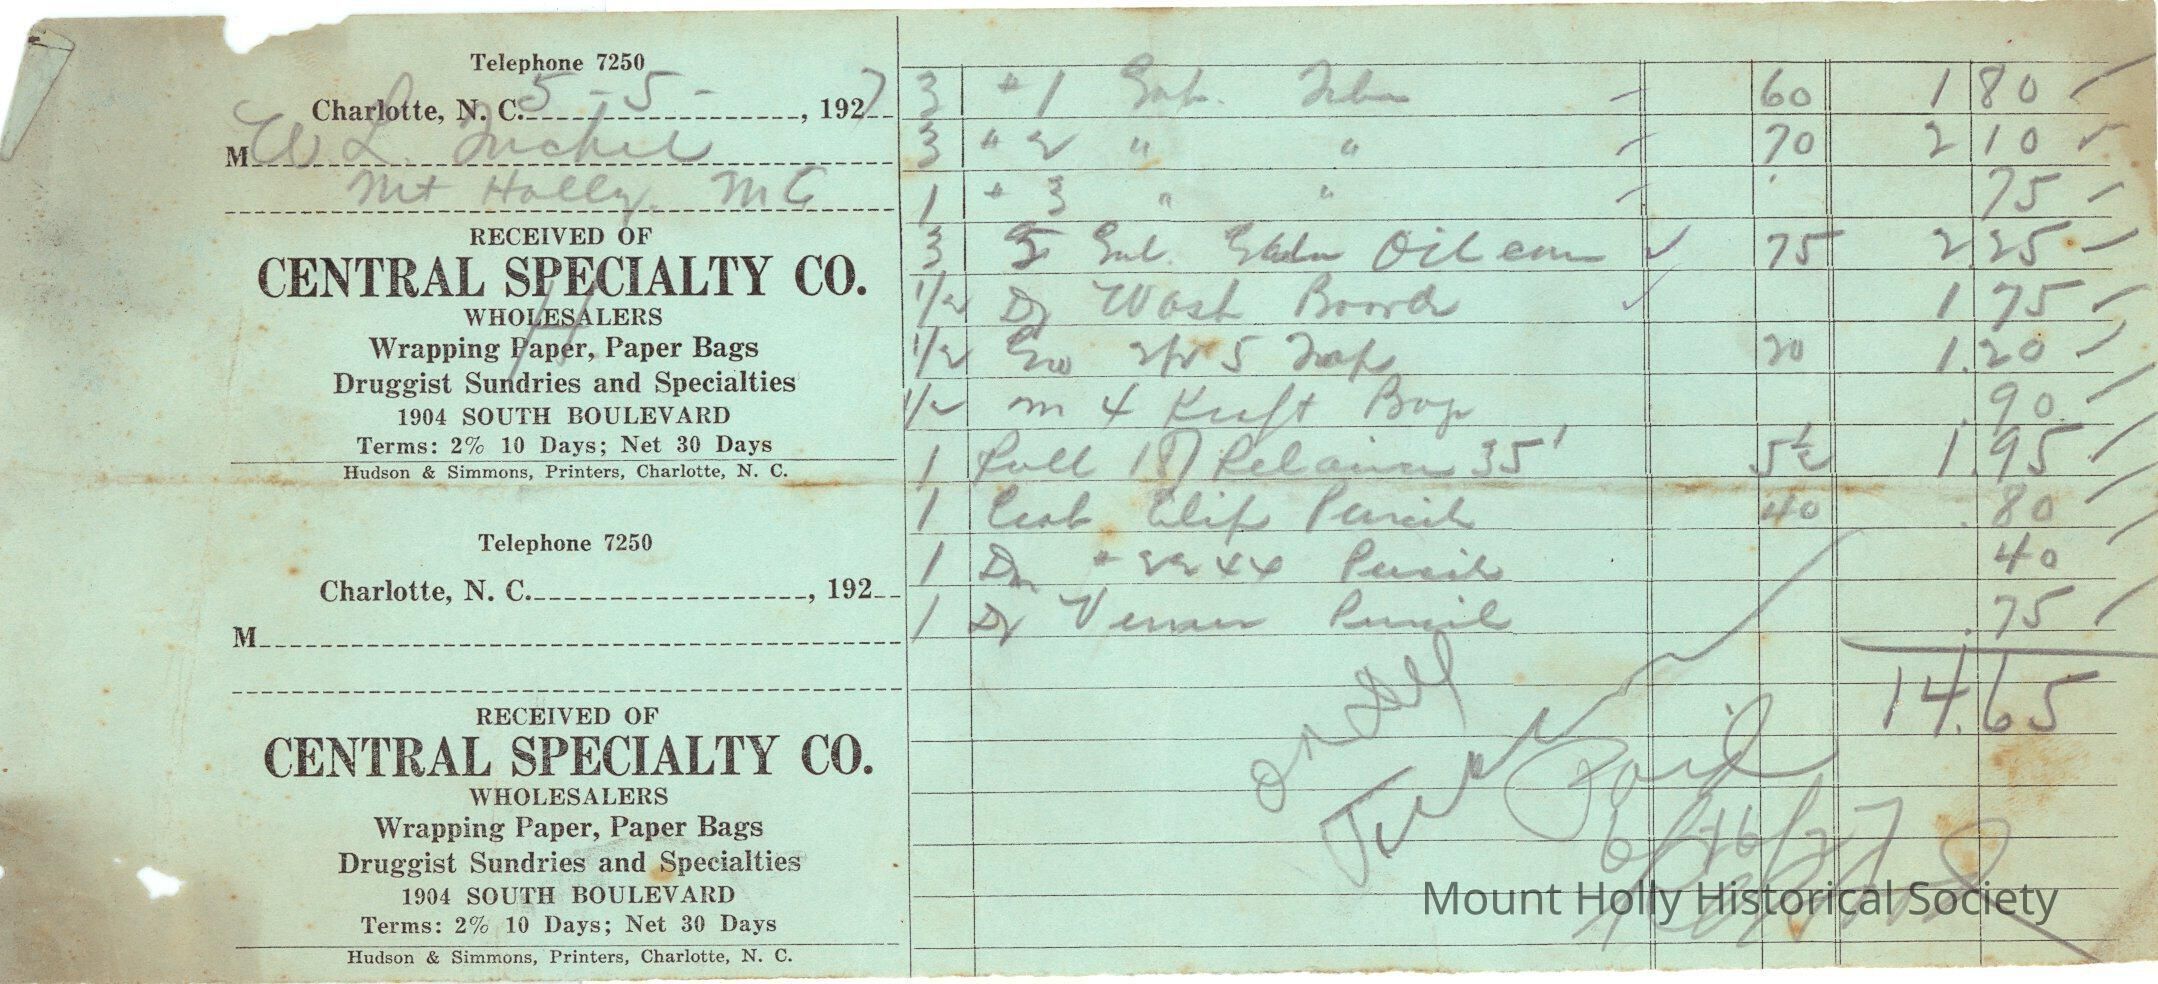 Telephone 7250
Charlotte, N. C. 5-5- , 1927
M W L.
Mt Holly, N C
RECEIVED OF
CENTRAL SPECIALTY CO.
WHOLESALERS
Wrapping Paper, Paper Bags
Druggist Sundries and Specialties
1904 SOUTH BOULEVARD
Terms: 2% 10 Days; Net 30 Days
Hudson & Simmons, Printers, Charlotte, N. C.
Telephone 7250
Charlotte, N. C. , 192
M
RECEIVED OF
CENTRAL SPECIALTY CO.
WHOLESALERS
Wrapping Paper, Paper Bags
Druggist Sundries and Specialties
1904 SOUTH BOULEVARD
Terms: 2% 10 Days; Net 30 Days
Hudson & Simmons, Printers, Charlotte, N. C.
3 #1 60 1 80
3 " 2 " " 70 2 10
1 # 3 " " 75
3 5 Gal. Oil can 75 2.25
1/2 Dz Wash Board 1.75
1/2 5 20 1.20
1/2 m 4 Kraft Bag .90
1 Roll 18 35' 5½ 1.95
1 Clip Pencil 40 .80
1 Dz Pencil 40
1 Dz Pencil .75
14.65
Paid
6/16/27
Mount Holly Historical Society